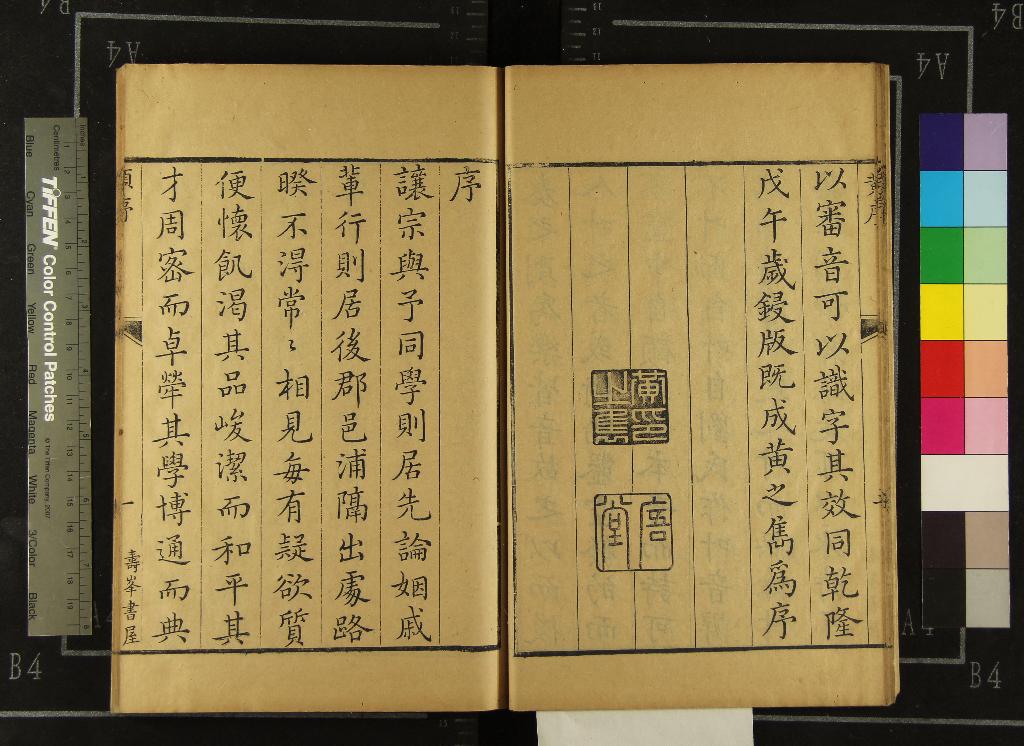 黃序
以審音可以識字其效同乾隆
戊午歲鋟版既成黃之雋爲序
黃印之雋
𢈪堂
序
讓宗與予同學則居先論姻戚
輩行則居後郡邑浦隔出處路
睽不淂常〻相見每有疑欲質
便懷飢渴其品峻潔而和平其
才周宻而卓犖其學博通而典
顧序
一
壽峯書屋
B4
A4
A4
B4
A4
A4
B4
B4
Inches
Centimetres
TIFFEN Color Control Patches
© The Tiffen Company, 2007
Blue
Cyan
Green
Yellow
Red
Magenta
White
3/Color
Black